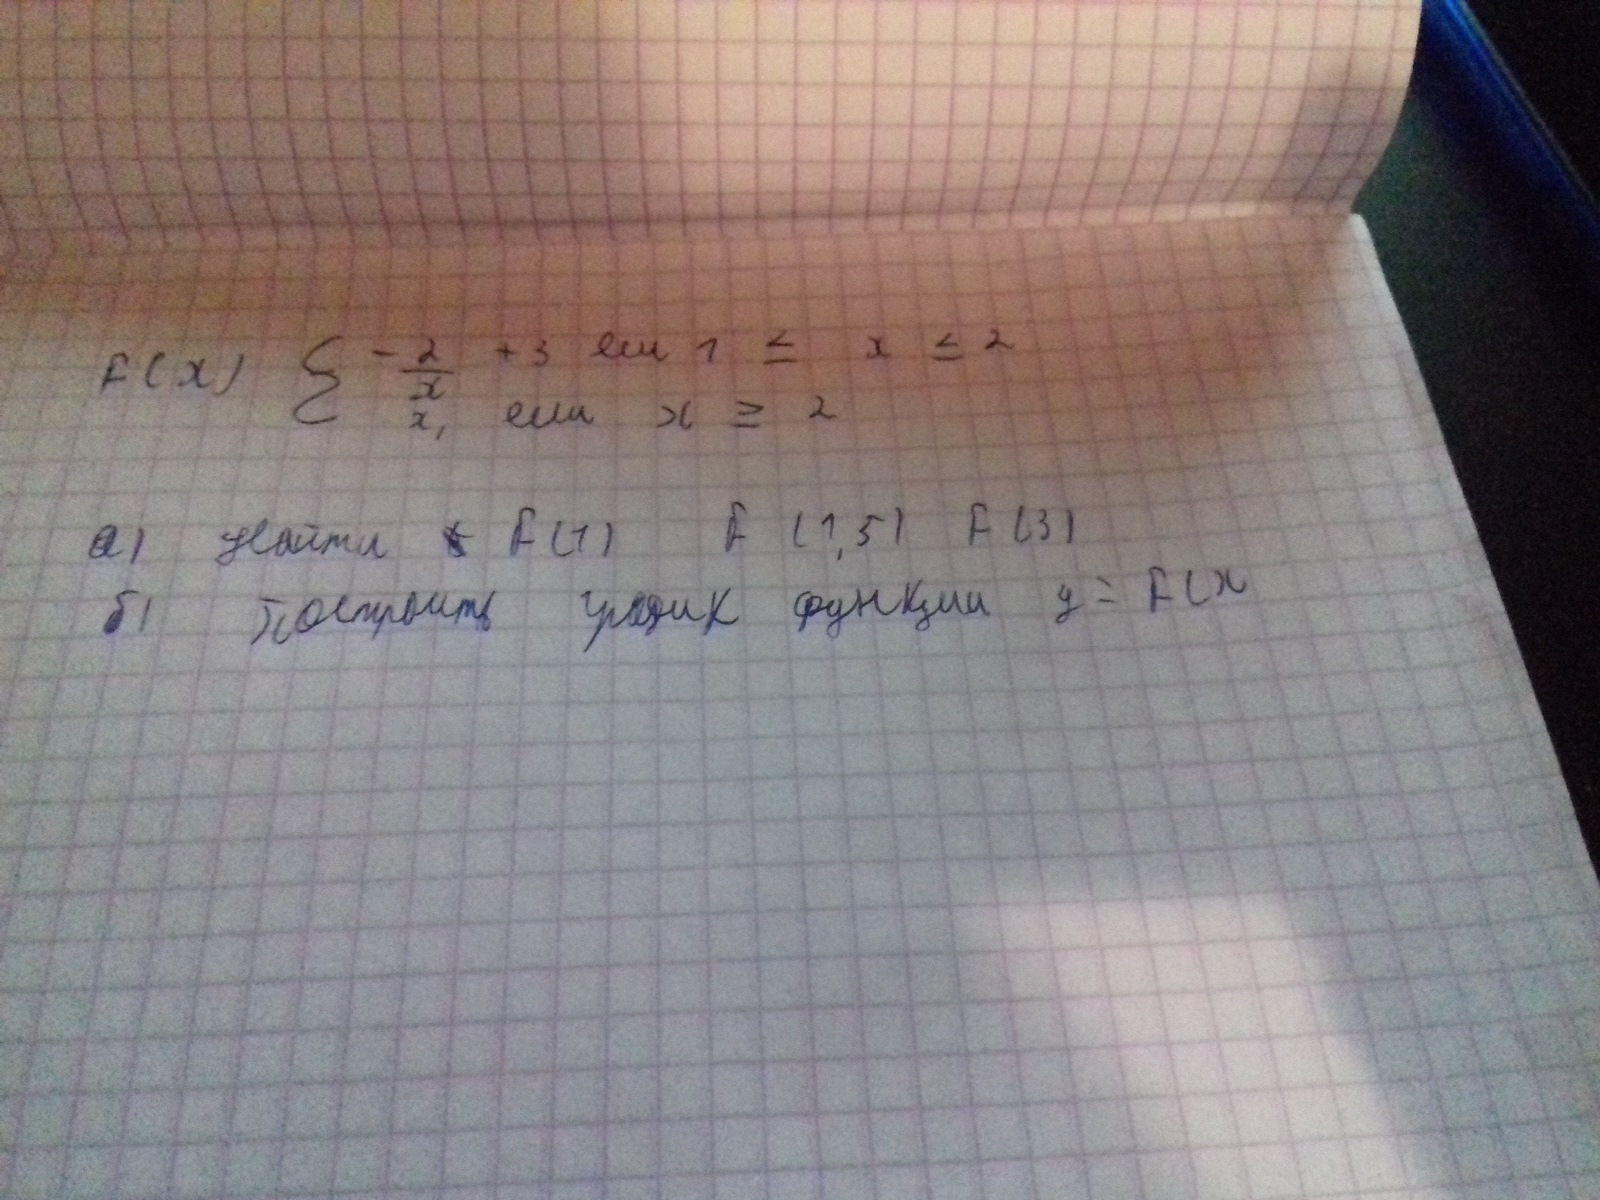 F(x) { -2/x +3 если 1 ≤ x ≤ 2
x, если x ≥ 2
а) Найти F(1) F(1,5) F(3)
б) Построить график функции y = F(x